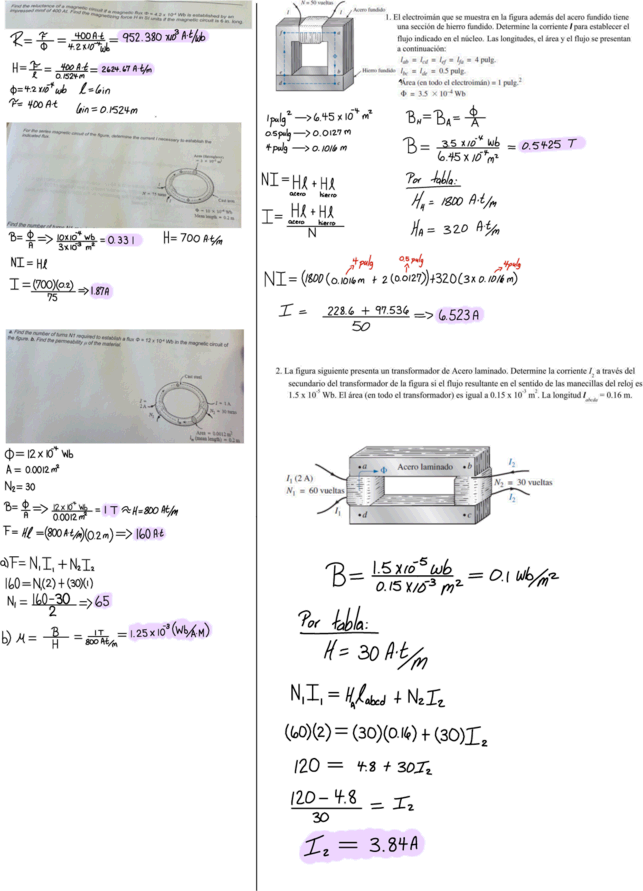 Find the reluctance of a magnetic circuit if a magnetic flux Φ = 4.2 × 10⁻⁴ Wb is established by an
impressed mmf of 400 At. Find the magnetizing force H in SI units if the magnetic circuit is 6 in. long.
R = F/Φ = 400 A·t / 4.2x10⁻⁴ wb = 952.380 x10³ A·t/wb
H = F/l = 400 A·t / 0.1524m = 2624.67 A·t/m
Φ=4.2 x10⁻⁴ wb l=6in
F= 400 A·t 6in = 0.1524m
For the series magnetic circuit of the figure, determine the current I necessary to establish the
indicated flux.
Cast iron
Find the number of turns
B= Φ/A => 10x10⁻⁴ wb / 3x10⁻³ m² = 0.331 H= 700 A·t/m
NI = Hl
I = (700)(0.2) / 75 => 1.87A
a. Find the number of turns N1 required to establish a flux Φ = 12 x 10⁻⁴ Wb in the magnetic circuit of
the figure. b. Find the permeability μ of the material.
Cast steel
I = 2 A
N₁
I = 1 A
N₂ = 30 turns
Area = 0.0012 m²
lₘ (mean length) = 0.2 m
Φ = 12 x 10⁻⁴ Wb
A = 0.0012 m²
N₂ = 30
B= Φ/A => 12 x 10⁻⁴ wb / 0.0012 m² = 1 T ≈ H= 800 At/m
F = Hl = (800 At/m)(0.2 m) => 160 At
a) F= N₁I₁ + N₂I₂
160 = N₁(2) + (30)(1)
N₁ = 160-30 / 2 => 65
b) μ = B/H = 1T / 800 At/m = 1.25 x 10⁻³ (Wb/A·M)
N = 50 vueltas
I
I
Acero fundido
Hierro fundido
1. El electroimán que se muestra en la figura además del acero fundido tiene
una sección de hierro fundido. Determine la corriente I para establecer el
flujo indicado en el núcleo. Las longitudes, el área y el flujo se presentan
a continuación:
l_ab = l_cd = l_ef = l_fa = 4 pulg.
l_bc = l_de = 0.5 pulg.
Área (en todo el electroimán) = 1 pulg.²
Φ = 3.5 × 10⁻⁴ Wb
1pulg² → 6.45 x 10⁻⁴ m²
0.5pulg → 0.0127 m
4 pulg → 0.1016 m
B_H = B_A = Φ/A
B = 3.5 x10⁻⁴ wb / 6.45 x 10⁻⁴ m² = 0.5425 T
NI = Hl acero + Hl hierro
I = Hl acero + Hl hierro / N
Por tabla:
H_H = 1800 A·t/m
H_A = 320 A·t/m
4 pulg 0.5 pulg 4pulg
NI = (1800 (0.1016 m + 2 (0.0127)) + 320 (3 x 0.1016 m)
I = 228.6 + 97.536 / 50 => 6.523 A
2. La figura siguiente presenta un transformador de Acero laminado. Determine la corriente I₂ a través del
secundario del transformador de la figura si el flujo resultante en el sentido de las manecillas del reloj es
1.5 x 10⁻⁵ Wb. El área (en todo el transformador) es igual a 0.15 x 10⁻³ m². La longitud l_abcda = 0.16 m.
a Φ Acero laminado b
I₂
I₁ (2 A)
N₁ = 60 vueltas
N₂ = 30 vueltas
I₂
I₁
d
c
B = 1.5 x10⁻⁵ wb / 0.15 x10⁻³ m² = 0.1 wb/m²
Por tabla:
H = 30 A·t/m
N₁I₁ = H_A l_abcd + N₂I₂
(60)(2) = (30)(0.16) + (30)I₂
120 = 4.8 + 30I₂
120 - 4.8 / 30 = I₂
I₂ = 3.84A